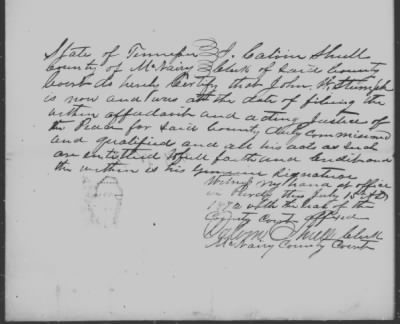 State of Tennessee } I. Calvin Shull
County of McNairy } Clerk of said County
Court do hereby Certify that John W. Stumph
is now and was at the date of filing the
within affadavit and acting Justice of
the Peace for said County duly Commissioned
and qualified and all his acts as such
are entitled to full faith and Credit and
the within is his genuine Signature
Witness my hand at office
in Purdy this July 15
1872 with the seal of the
County Court affixed
Calvin Shull Clerk
McNairy County Court